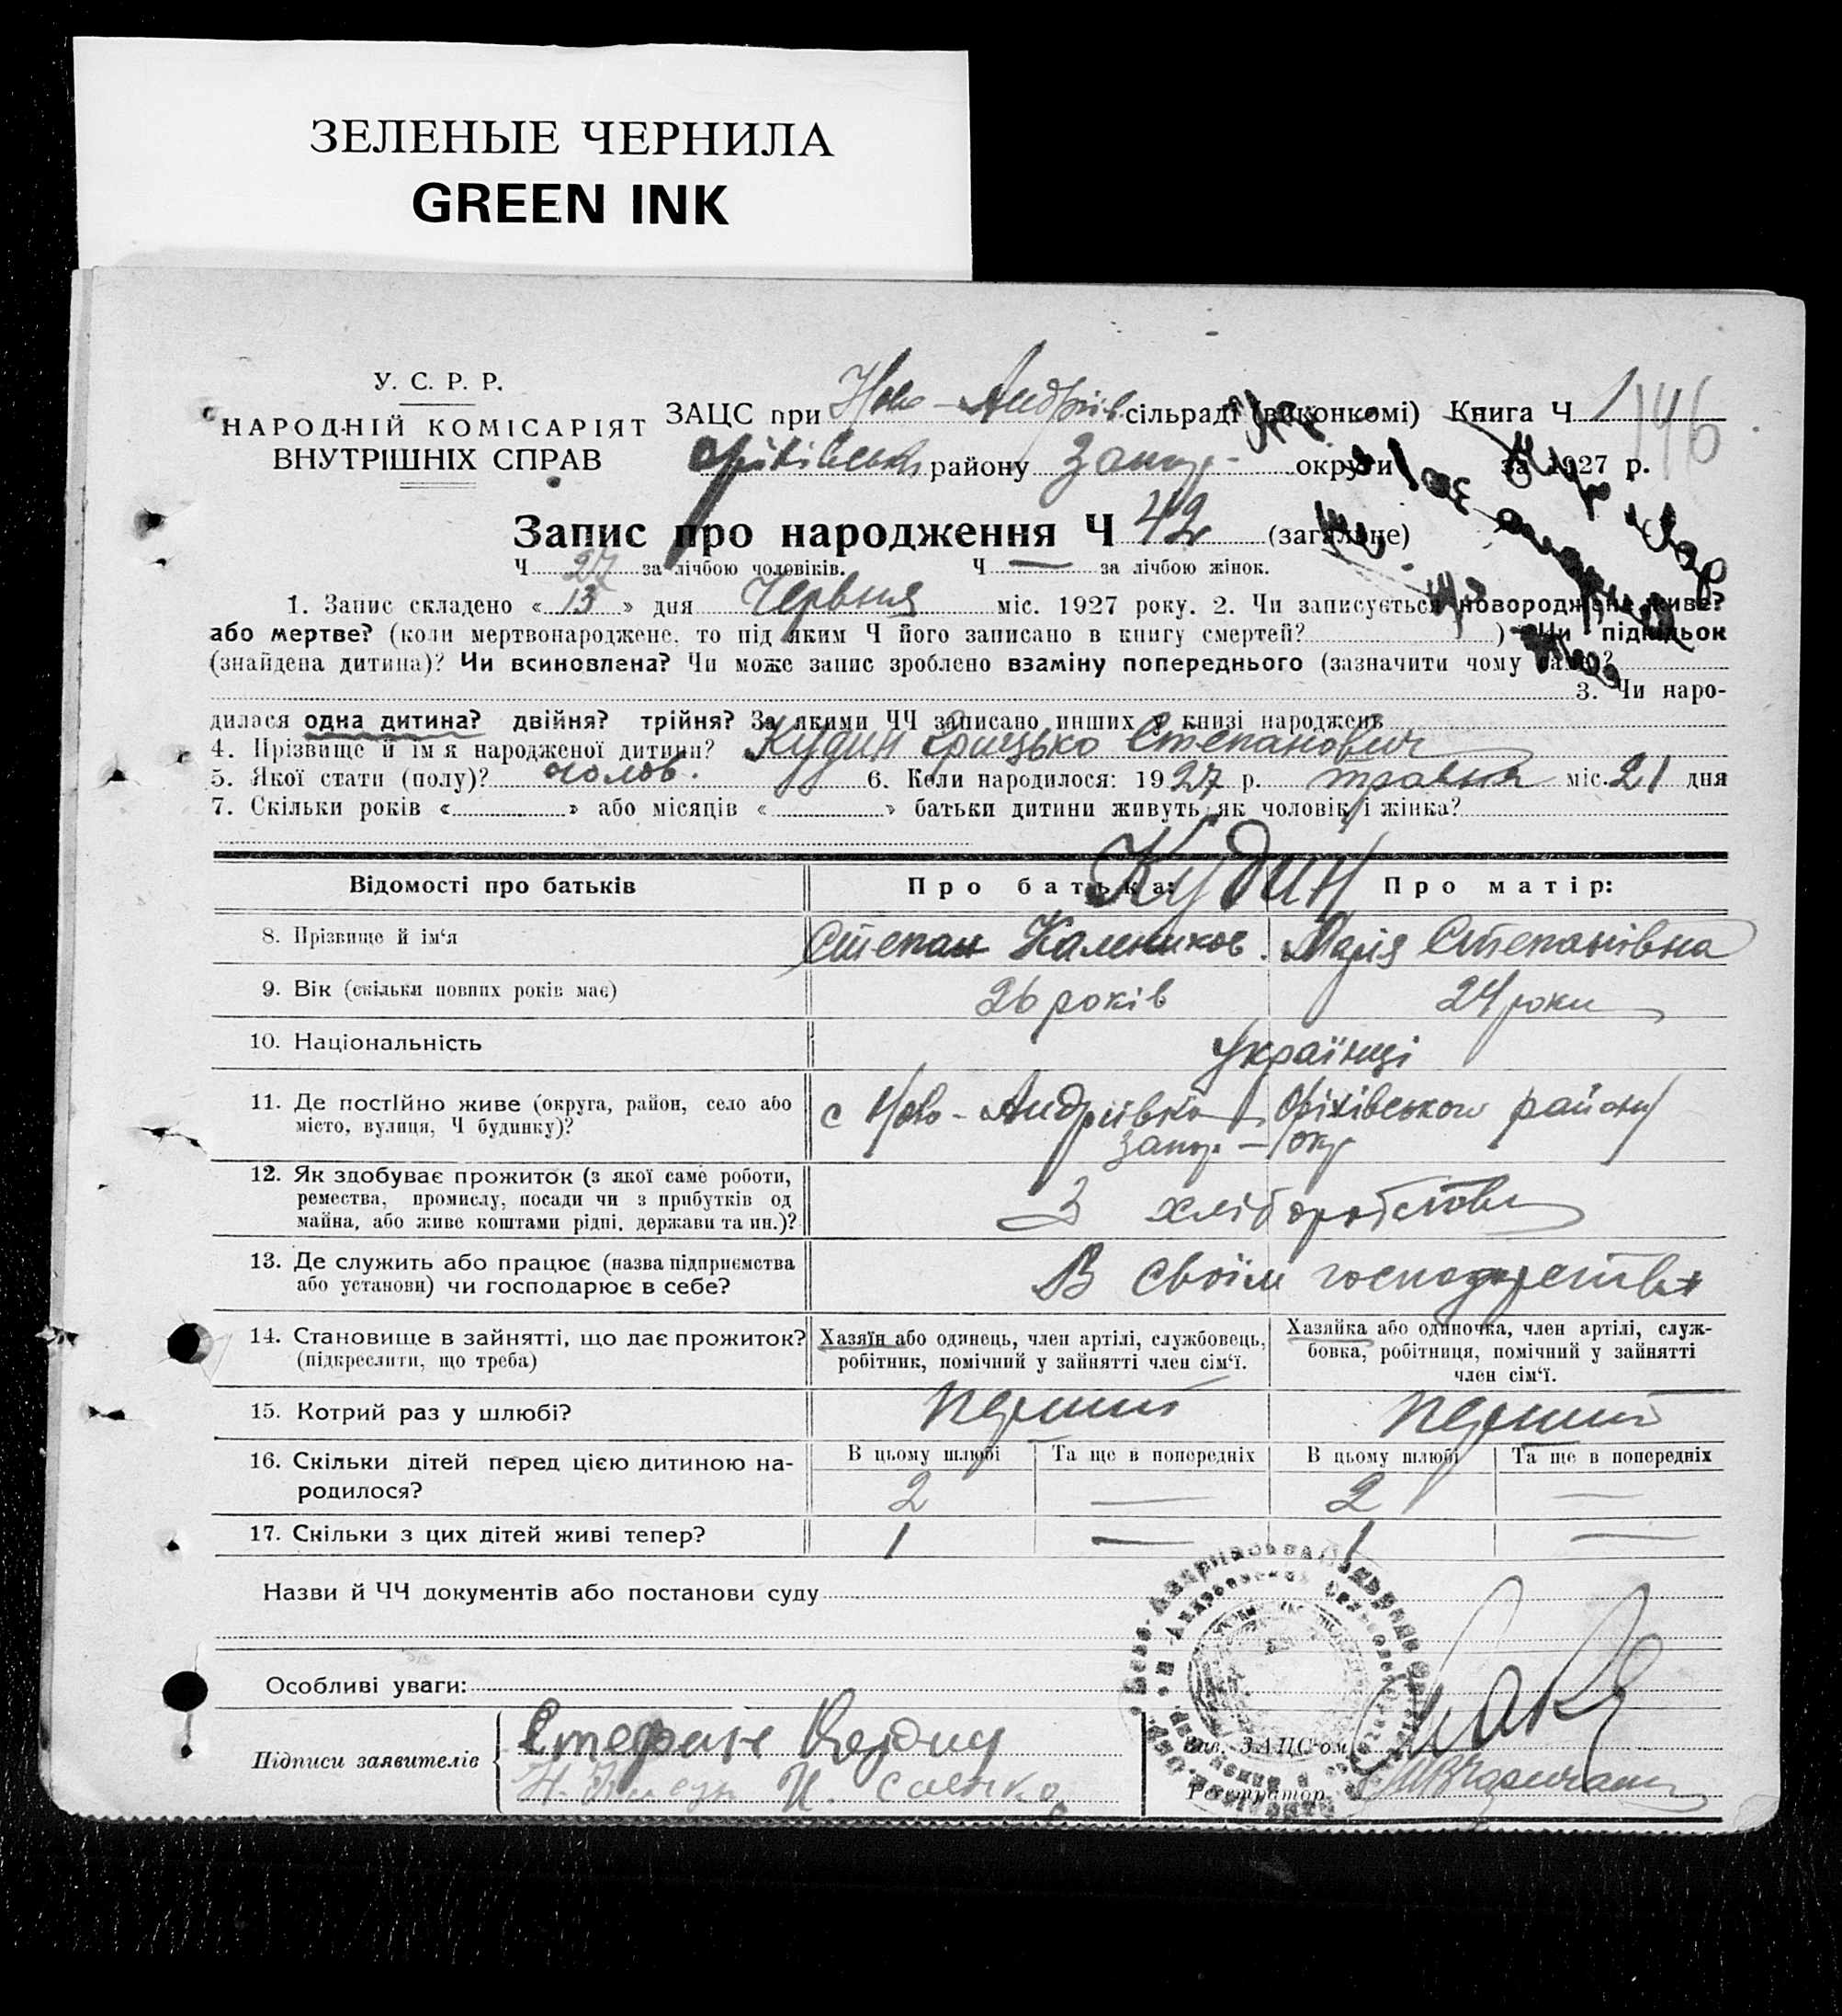 ЗЕЛЕНЫЕ ЧЕРНИЛА
GREEN INK
У. С. Р. Р.
НАРОДНІЙ КОМІСАРІЯТ
ВНУТРІШНІХ СПРАВ
ЗАЦС при Ново-Андріїв. сільраді (виконкомі) Книга Ч 1
146
Оріхівськ. району Запор. округи за 1927 р.
Запис про народження Ч 42 (загальне)
Ч 27 за лічбою чоловіків. Ч — за лічбою жінок.
1. Запис складено «13» дня Червня міс. 1927 року. 2. Чи записується новороджене живе?
або мертве? (коли мертвонароджене, то під яким Ч його записано в книгу смертей? ) Чи підкидьок
(знайдена дитина)? Чи всиновлена? Чи може запис зроблено взаміну попереднього (зазначити чому саме?
3. Чи наро-
дилася одна дитина? двійня? трійня? За якими ЧЧ записано инших у книзі народжень
4. Прізвище й ім'я народженої дитини? Кудин Грицько Степанович
5. Якої стати (полу)? чолов. 6. Коли народилося: 1927 р. травня міс. 21 дня
7. Скільки років « » або місяців « » батьки дитини живуть як чоловік і жінка?
Відомості про батьків Про батька: Про матір:
Кудин
8. Прізвище й ім'я Степан Калеников. Марія Степанівна
9. Вік (скільки повних років має) 26 років 24 роки
10. Національність Українці
11. Де постійно живе (округа, район, село або
місто, вулиця, Ч будинку)? с Ново-Андріївка Оріхівського району
Запор. — окр
12. Як здобуває прожиток (з якої саме роботи,
ремества, промислу, посади чи з прибутків од
майна, або живе коштами рідні, держави та ин.)? З хліборобства
13. Де служить або працює (назва підприємства
або установи) чи господарює в себе? В своїм господарстві
14. Становище в зайнятті, що дає прожиток?
(підкреслити, що треба)
Хазяїн або одинець, член артілі, службовець,
робітник, помічний у зайнятті член сім'ї.
Хазяйка або одиночка, член артілі, служ-
бовка, робітниця, помічний у зайнятті
член сім'ї.
15. Котрий раз у шлюбі? Перший Перший
16. Скільки дітей перед цією дитиною на-
родилося?
В цьому шлюбі Та ще в попередніх В цьому шлюбі Та ще в попередніх
2 — 2 —
17. Скільки з цих дітей живі тепер? 1 — 1 —
Назви й ЧЧ документів або постанови суду
Особливі уваги:
Підписи заявителів
Зав. ЗАЦС'ом
Реєстратор